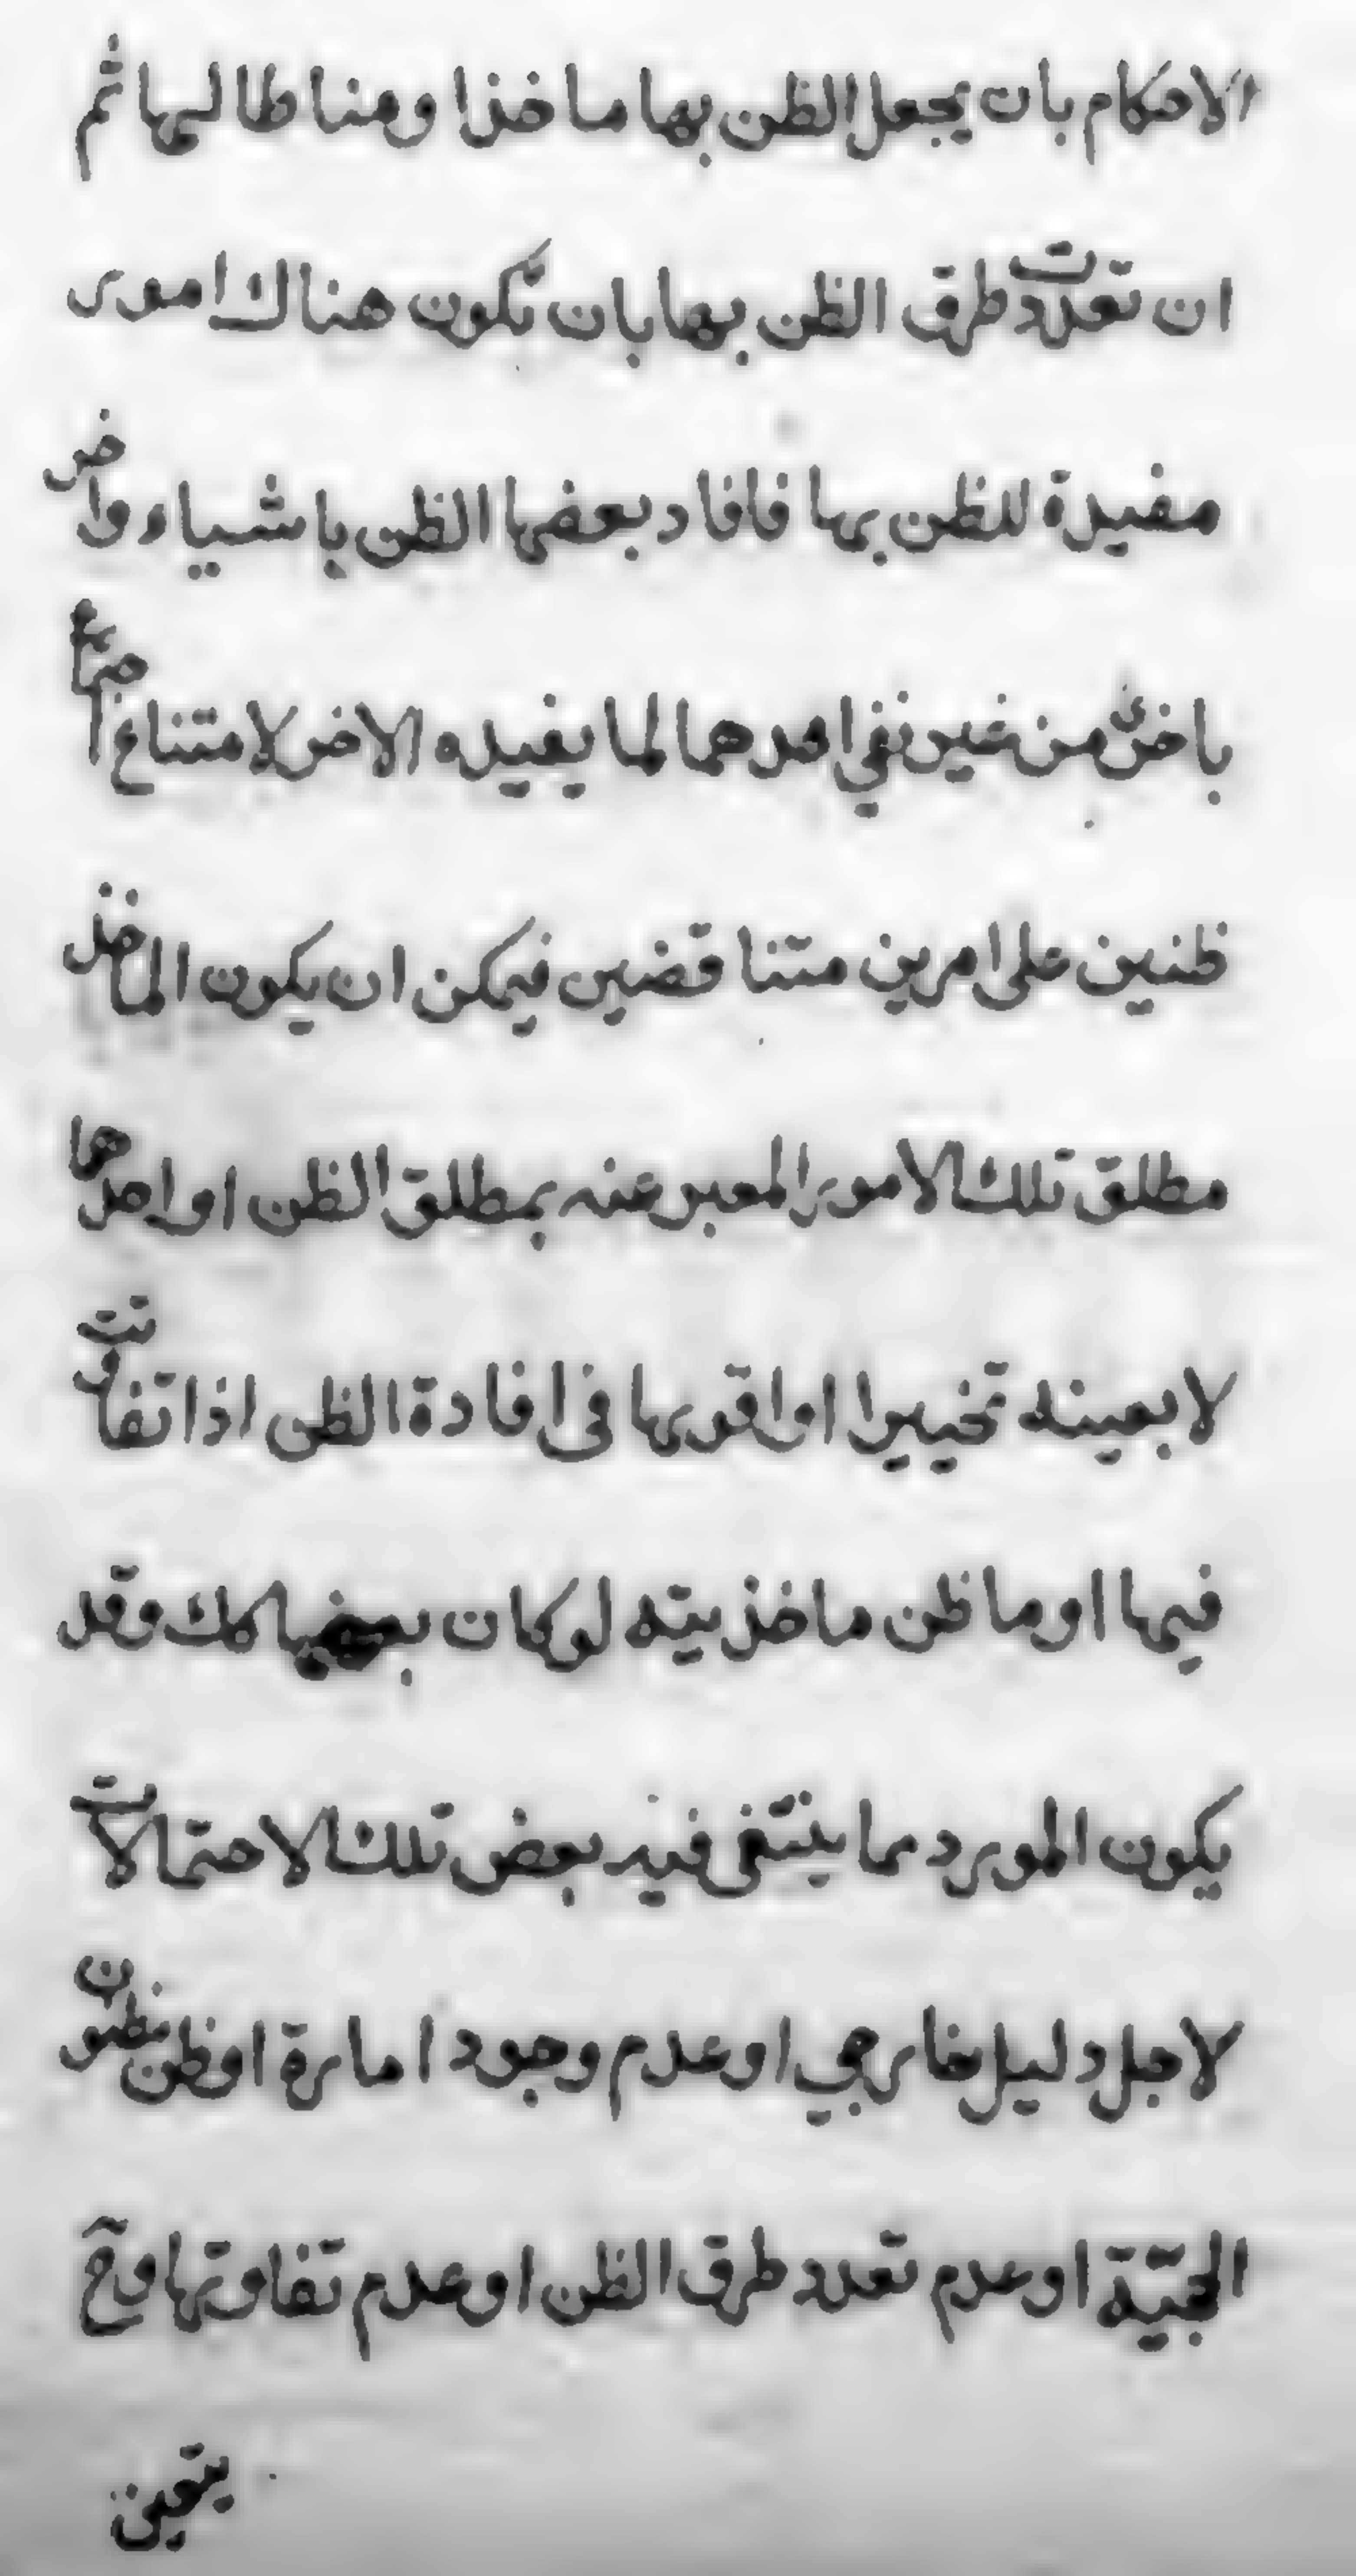 الاحكام بان يجعل الظن بها ماخذا ومناطا لها ثم
ان تعددت طرق الظن بها بان تكون هناك امور
مفيدة للظن بها فافاد بعضها الظن باشياء واخر
باخرى من غير نفي احدهما لما يفيده الاخر لامتناع اجتماع
ظنين على امرين متناقضين فيمكن ان يكون الماخذ
مطلق تلك الامور المعبر عنه بمطلق الظن او احدها
لا بعينه تخييرا او اقويها في افادة الظن اذا تفاوتت
فيها او ما ظن ماخذيته لو كان بعضها كك وقد
يكون المورد مما ينتفى فيه بعض تلك الاحتمالات
لاجل دليل خارجي او عدم وجود امارة او ظن مظنون
الحجيّة او عدم تعدد طرق الظن او عدم تفاوتها وح
يتعين